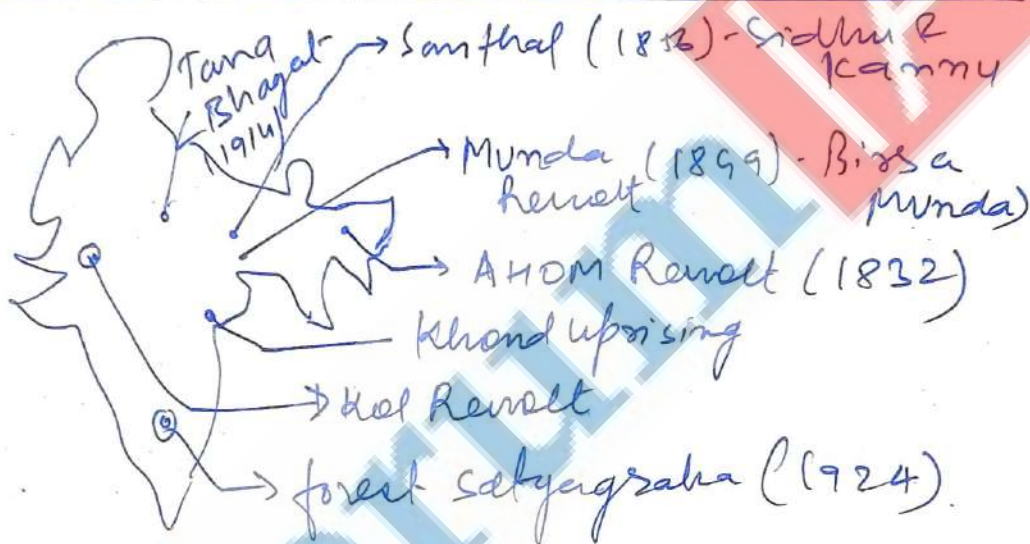 Tana
Bhagat
1914)
Santhal (1856) - Sidhu &
Kannu
Munda (1899) - Birsa
Revolt Munda)
AHOM Revolt (1832)
Khond uprising
Kol Revolt
forest satyagraha (1924).
rum